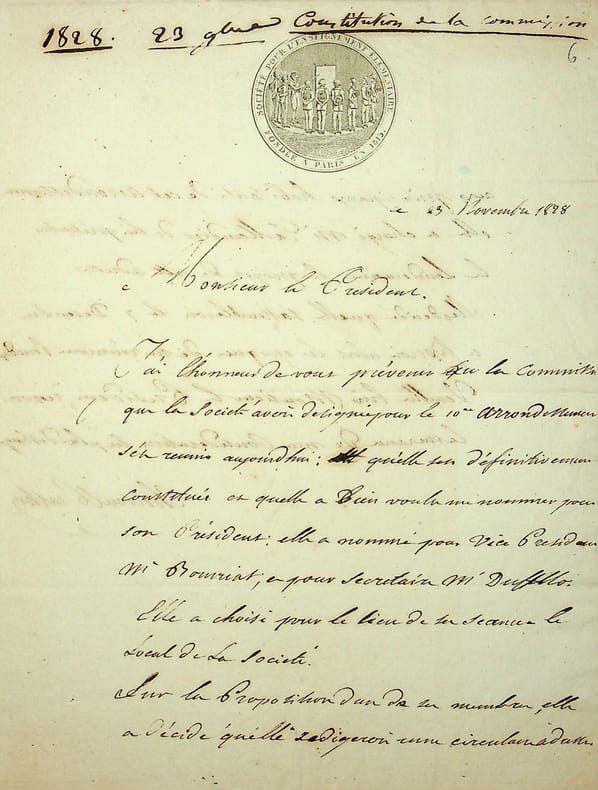 1828. 23 9bre Constitution de la commission
6
SOCIÉTÉ POUR L'ENSEIGNEMENT ÉLÉMENTAIRE
FONDÉE A PARIS EN 1815.
23 Novembre 1828
Monsieur le President.
J'ai l'honneur de vous prévenir que la Commission
que la Société avoit designée pour le 10me arrondissement
s'est reunie aujourd'hui; qu'elle s'est définitivement
constituée et quelle a bien voulu me nommer pour
son Président; elle a nommé pour Vice President
Mr Bourriat, et pour Secretaire Mr
Elle a choisi pour le lieu de ses seances le
Local de La Société.
Sur la Proposition d'un de ses membres, elle
a décidé qu'elle redigeroit une circulaire